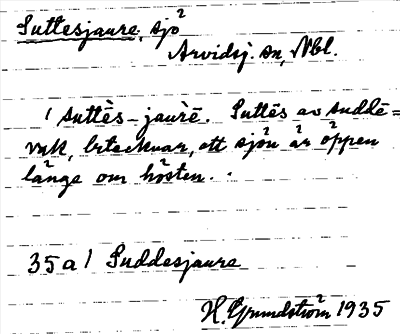 Suttesjaure, sjö
Arvidsj. sn, Vbl.
/ suttēs-jaùrē. Suttēs av suddē=
vuk, betecknar, att sjön är öppen
länge om hösten.
35 a / Suddesjaure
H. Grundström 1935